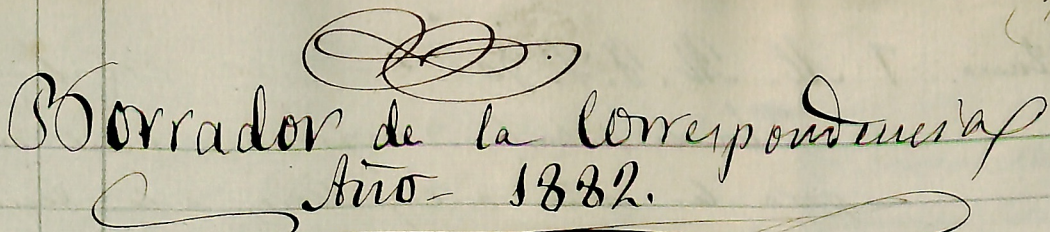 Borrador de la Correspondencia
Año - 1882.